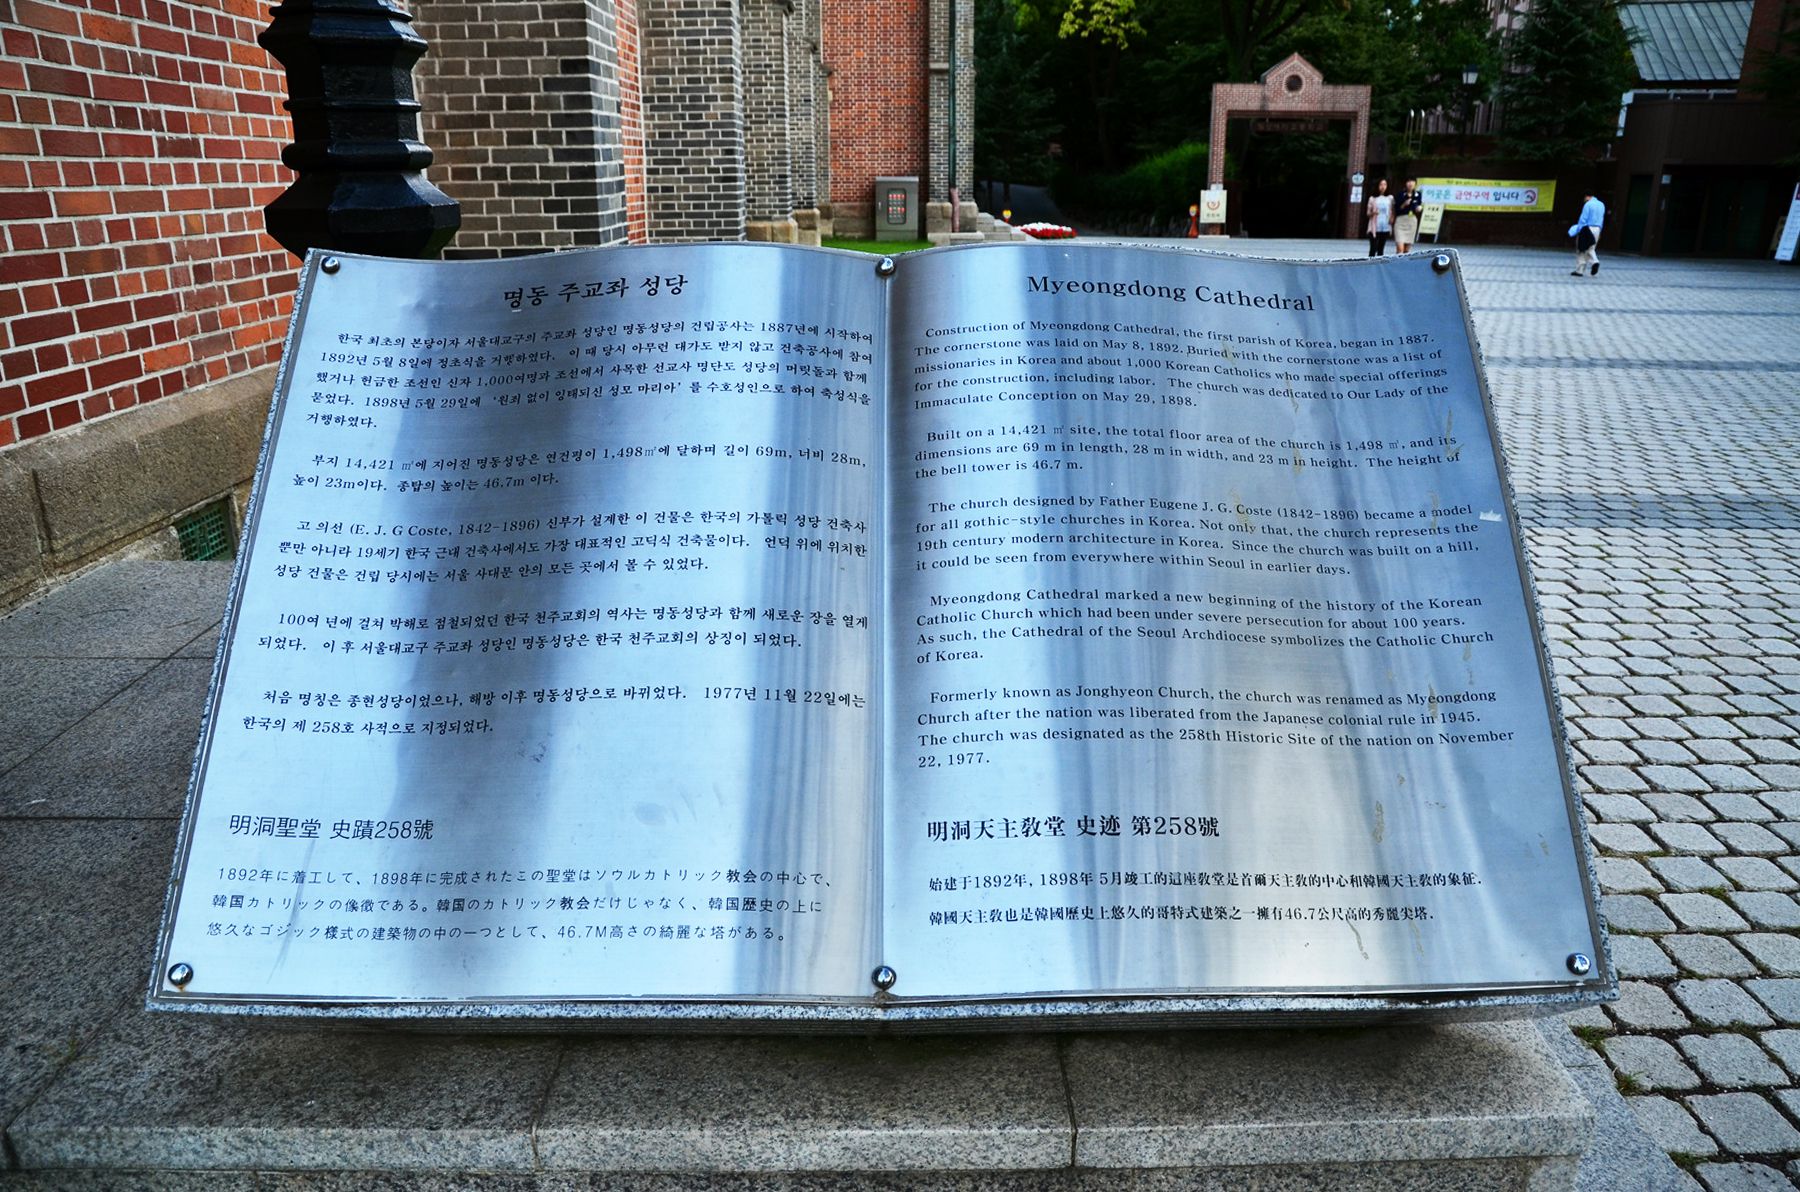 명동 주교좌 성당
한국 최초의 본당이자 서울대교구의 주교좌 성당인 명동성당의 건립공사는 1887년에 시작하여
1892년 5월 8일에 정초식을 거행하였다. 이 때 당시 아무런 대가도 받지 않고 건축공사에 참여
했거나 헌금한 조선인 신자 1,000여명과 조선에서 사목한 선교사 명단도 성당의 머릿돌과 함께
묻었다. 1898년 5월 29일에 '원죄 없이 잉태되신 성모 마리아' 를 수호성인으로 하여 축성식을
거행하였다.
부지 14,421 ㎡에 지어진 명동성당은 연건평이 1,498㎡에 달하며 길이 69m, 너비 28m,
높이 23m이다. 종탑의 높이는 46.7m 이다.
고 의선 (E. J. G Coste, 1842-1896) 신부가 설계한 이 건물은 한국의 가톨릭 성당 건축사
뿐만 아니라 19세기 한국 근대 건축사에서도 가장 대표적인 고딕식 건축물이다. 언덕 위에 위치한
성당 건물은 건립 당시에는 서울 사대문 안의 모든 곳에서 볼 수 있었다.
100여 년에 걸쳐 박해로 점철되었던 한국 천주교회의 역사는 명동성당과 함께 새로운 장을 열게
되었다. 이 후 서울대교구 주교좌 성당인 명동성당은 한국 천주교회의 상징이 되었다.
처음 명칭은 종현성당이었으나, 해방 이후 명동성당으로 바뀌었다. 1977년 11월 22일에는
한국의 제 258호 사적으로 지정되었다.
明洞聖堂 史蹟258號
1892年に着工して、1898年に完成されたこの聖堂はソウルカトリック教会の中心で、
韓国カトリックの像徴である。韓国のカトリック教会だけじゃなく、韓国歴史の上に
悠久なゴジック様式の建築物の中の一つとして、46.7M高さの綺麗な塔がある。
Myeongdong Cathedral
Construction of Myeongdong Cathedral, the first parish of Korea, began in 1887.
The cornerstone was laid on May 8, 1892. Buried with the cornerstone was a list of
missionaries in Korea and about 1,000 Korean Catholics who made special offerings
for the construction, including labor. The church was dedicated to Our Lady of the
Immaculate Conception on May 29, 1898.
Built on a 14,421 ㎡ site, the total floor area of the church is 1,498 ㎡, and its
dimensions are 69 m in length, 28 m in width, and 23 m in height. The height of
the bell tower is 46.7 m.
The church designed by Father Eugene J. G. Coste (1842-1896) became a model
for all gothic-style churches in Korea. Not only that, the church represents the
19th century modern architecture in Korea. Since the church was built on a hill,
it could be seen from everywhere within Seoul in earlier days.
Myeongdong Cathedral marked a new beginning of the history of the Korean
Catholic Church which had been under severe persecution for about 100 years.
As such, the Cathedral of the Seoul Archdiocese symbolizes the Catholic Church
of Korea.
Formerly known as Jonghyeon Church, the church was renamed as Myeongdong
Church after the nation was liberated from the Japanese colonial rule in 1945.
The church was designated as the 258th Historic Site of the nation on November
22, 1977.
明洞天主敎堂 史迹 第258號
始建于1892年, 1898年 5月竣工的這座敎堂是首爾天主敎的中心和韓國天主敎的象征.
韓國天主敎也是韓國歷史上悠久的哥特式建築之一擁有46.7公尺高的秀麗尖塔.
이곳은 금연구역 입니다